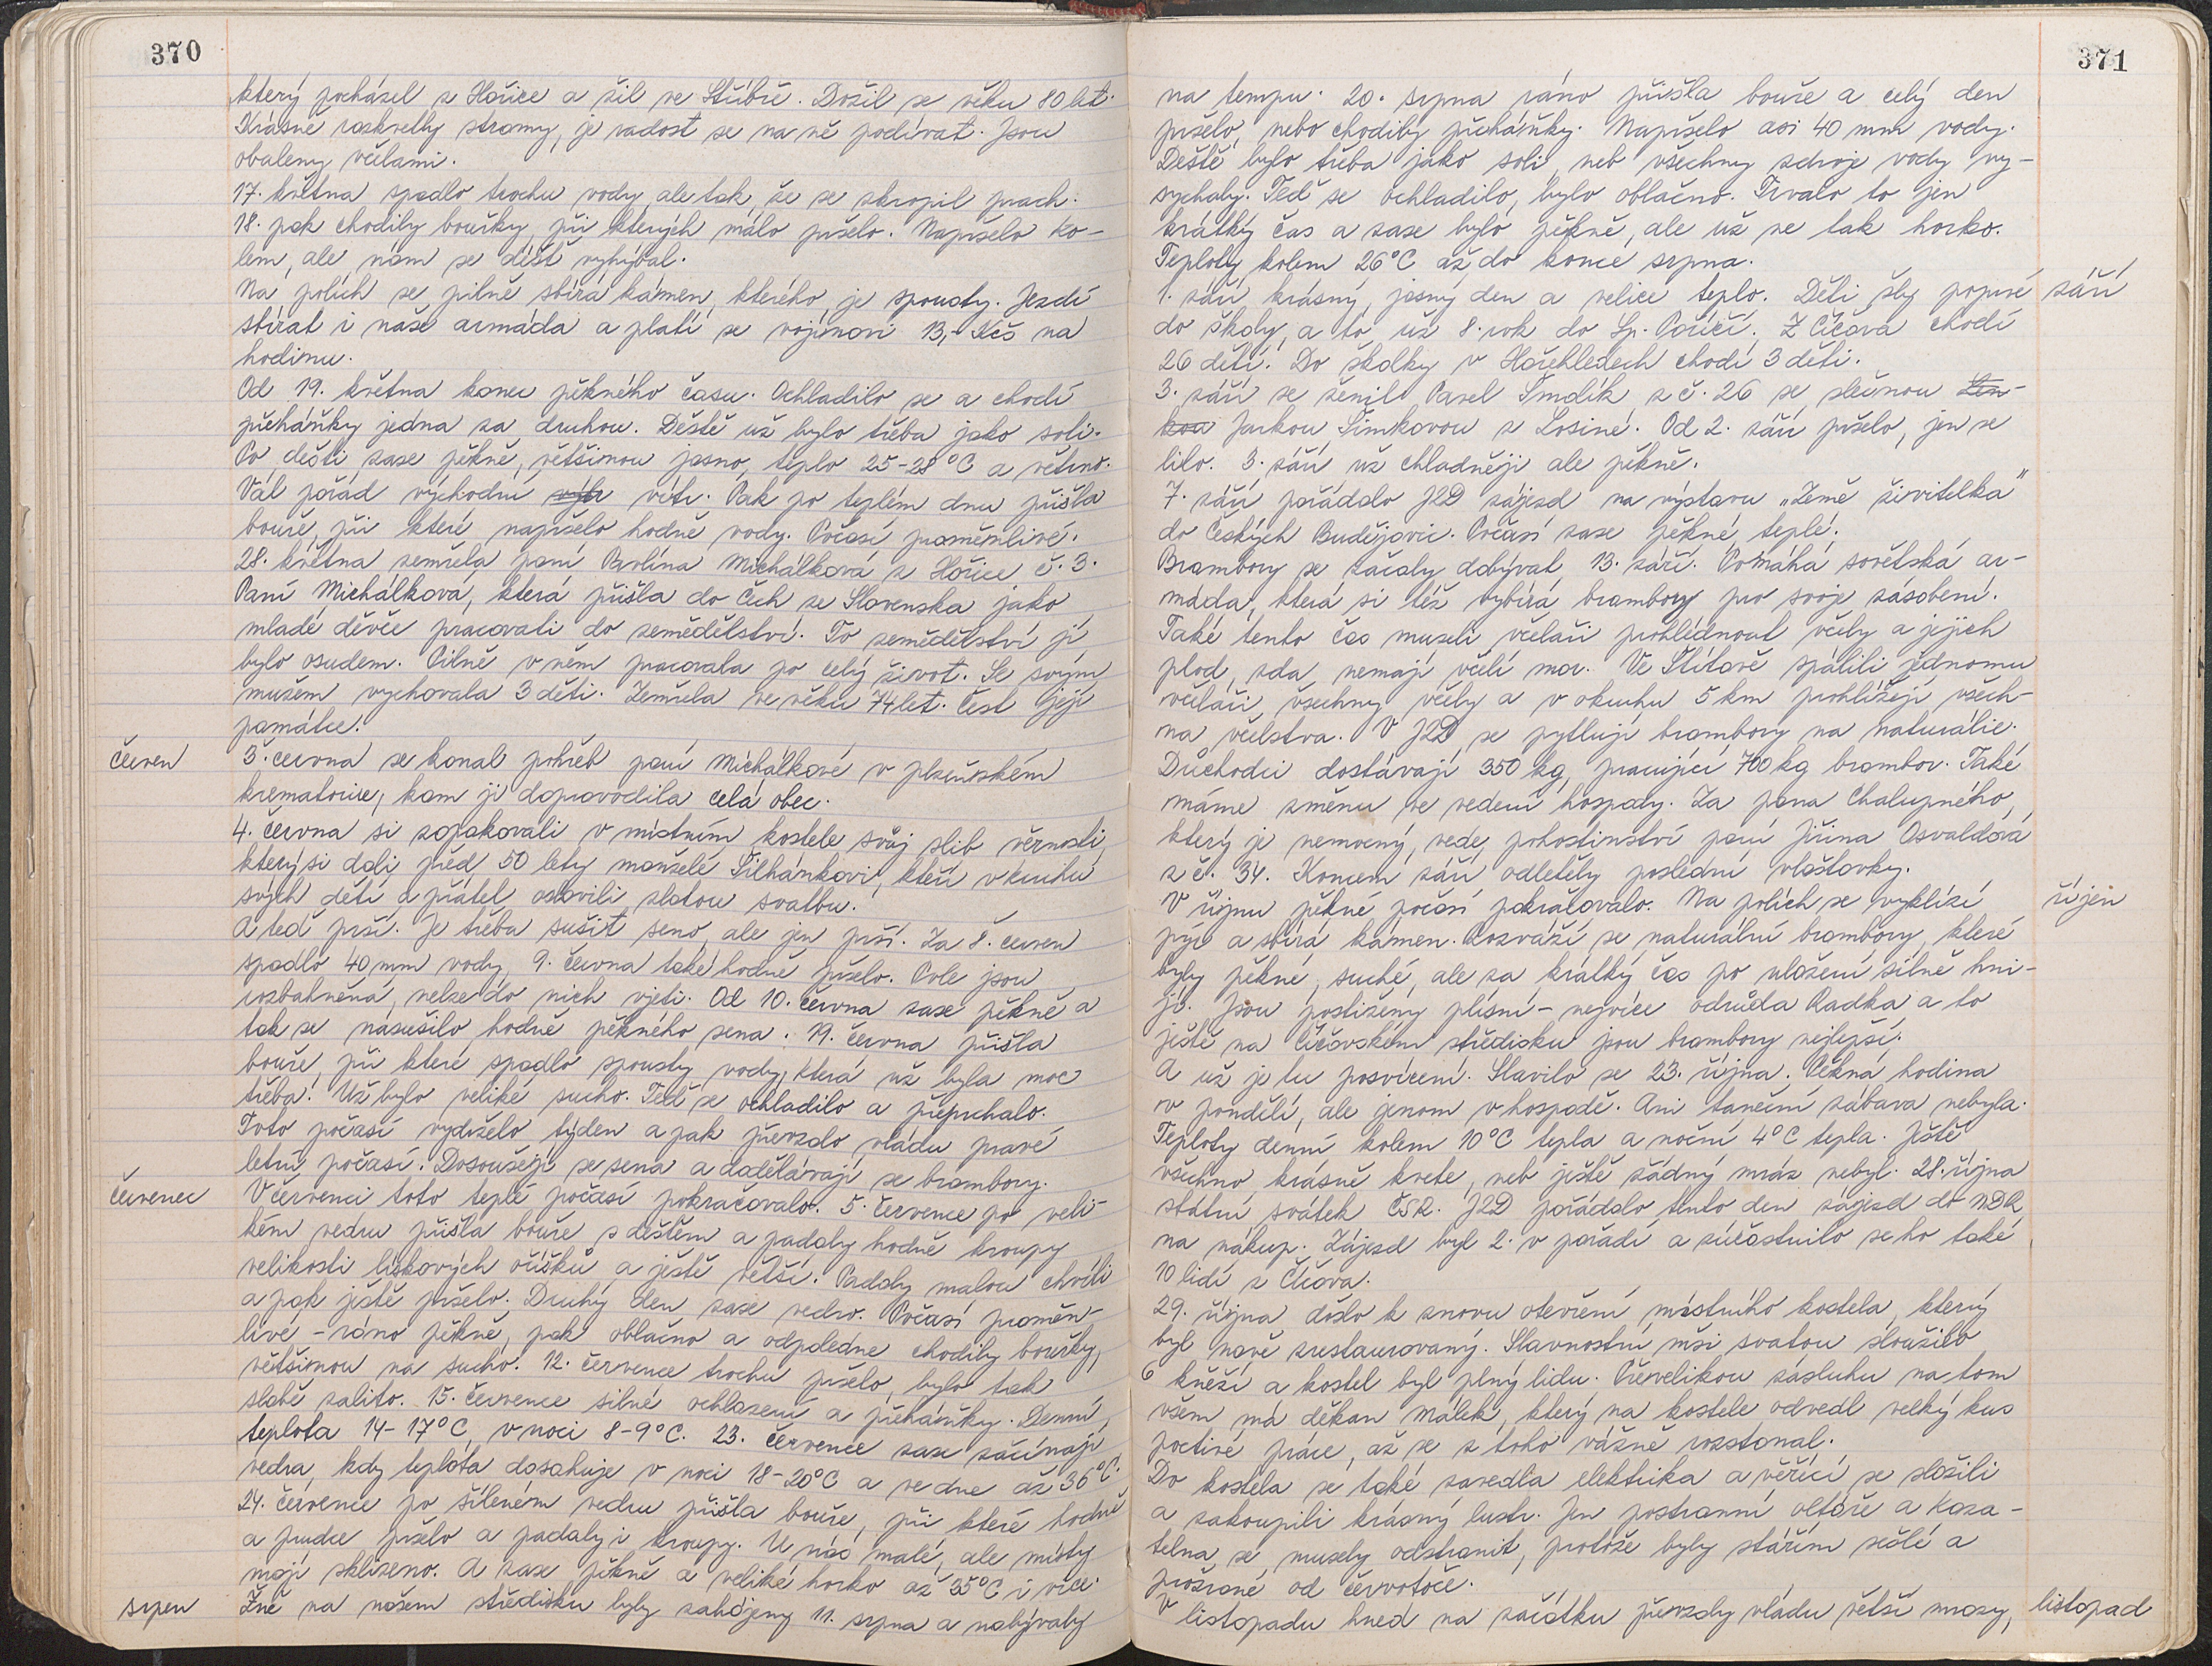 370
který pocházel z Hořice a žil ve Stříbře. Dožil se věku 80 let.
Krásně rozkvetly stromy, je radost se na ně podívat. Jsou
obaleny včelami.
17. května spadlo trochu vody, ale tak, že se skropil prach.
18. pak chodily bouřky, při kterých málo pršelo. Napršelo ko-
lem, ale nám se déšť vyhýbal.
Na polích se pilně sbírá kámen, kterého je spousty. Jezdí
sbírat i naše armáda a platí se vojínovi 13,- Kčs na
hodinu.
Od 19. května konec pěkného času. Ochladilo se a chodí
přeháňky jedna za druhou. Deště už bylo třeba jako soli.
Po dešti zase pěkně, většinou jasno, teplo 25-28°C a větrno.
Vál pořád východní výtr vítr. Pak po teplém dnu přišla
bouře, při které napršelo hodně vody. Počasí proměnlivé.
28. května zemřela paní Pavlína Michálková z Hořice č. 3.
Paní Michálková, která přišla do Čech ze Slovenska jako
mladé děvče pracovati do zemědělství. To zemědělství jí
bylo osudem. Pilně v něm pracovala po celý život. Se svým
mužem vychovala 3 děti. Zemřela ve věku 74 let. Čest její
památce!
červen
3. června se konal pohřeb paní Michálkové v plzeňském
krematoriu, kam ji doprovodila celá obec.
4. června si zopakovali v místním kostele svůj slib věrnosti,
který si dali před 50 lety manželé Šilhánkovi, kteří v kruhu
svých dětí a přátel oslavili zlatou svatbu.
A teď prší. Je třeba sušit seno, ale jen prší. Za 8. červen
spadlo 40 mm vody, 9. června také hodně pršelo. Pole jsou
rozbahněná, nelze do nich vjeti. Od 10. června zase pěkně a
tak se nasušilo hodně pěkného sena. 19. června přišla
bouře, při které spadlo spousty vody, která už byla moc
třeba. Už bylo veliké sucho. Teď se ochladilo a přeprchalo.
Toto počasí vydrželo týden a pak převzalo vládu pravé
letní počasí. Dosoušejí se sena a dodělávají se brambory.
červenec
V červenci toto teplé počasí pokračovalo. 5. července po veli-
kém vedru přišla bouře s deštěm a padaly hodně kroupy
velikosti lískových oříšků a ještě větší. Padaly malou chvíli
a pak ještě pršelo. Druhý den zase vedro. Počasí proměn-
livé - ráno pěkně, pak oblačno a odpoledne chodily bouřky,
většinou na sucho. 12. července trochu pršelo, bylo tak
slabě zalito. 15. července silné ochlazení a přeháňky. Denní
teplota 14-17°C, v noci 8-9°C. 23. července zase začínají
vedra, kdy teplota dosahuje v noci 18-20°C a ve dne až 36°C.
24. července po šíleném vedru přišla bouře, při které hodně
a prudce pršelo a padaly i kroupy. U nás malé, ale místy
mají sklizeno. A zase pěkně a veliké horko až 35°C i více.
srpen
Žně na našem středisku byly zahájeny 11. srpna a nabývaly
371
na tempu. 20. srpna ráno přišla bouře a celý den
pršelo, nebo chodily přeháňky. Napršelo asi 40 mm vody.
Deště bylo třeba jako soli, neb všechny zdroje vody vy-
sychaly. Teď se ochladilo, bylo oblačno. Trvalo to jen
krátký čas a zase bylo pěkně, ale už ne tak horko.
Teploty kolem 26°C až do konce srpna.
1. září krásný, jasný den a velice teplo. Děti šly poprvé
září
do školy, a to už 8. rok do Sp. Poříčí. Z Číčova chodí
26 dětí. Do školky v Hořehledech chodí 3 děti.
3. září se ženil Pavel Šmolík z č. 26 se slečnou Len-
kou Jarkou Šimkovou z Losiné. Od 2. září pršelo, jen se
lilo. 3. září už chladněji ale pěkně.
7. září pořádalo JZD zájezd na výstavu „Země živitelka"
do Českých Budějovic. Počasí zase pěkné, teplé.
Brambory se začaly dobývat 13. září. Pomáhá sovětská ar-
máda, která si též vybírá brambory pro svoje zásobení.
Také tento čas museli včelaři prohlédnout včely a jejich
plod, zda nemají včelí mor. Ve Štítově spálili jednomu
včelaři všechny včely a v okruhu 5 km prohlížejí všech-
na včelstva. V JZD se pytlují brambory na naturálie.
Důchodci dostávají 350 kg, pracující 700 kg brambor. Také
máme změnu ve vedení hospody. Za pana Chalupného,
který je nemocný, vede pohostinství paní Jiřina Osvaldová
z č. 34. Koncem září odletěly poslední vlaštovky.
V říjnu pěkné počasí pokračovalo. Na polích se vyklízí
říjen
pýr a sbírá kámen. Rozváží se naturální brambory, které
byly pěkné, suché, ale za krátký čas po uložení silně hni-
jí. Jsou postiženy plísní - nejvíce odrůda Radka a to
ještě na Číčovském středisku jsou brambory nejlepší.
A už je tu posvícení. Slavilo se 23. října. Pěkná hodina
v pondělí, ale jenom v hospodě. Ani taneční zábava nebyla.
Teploty denní kolem 10°C tepla a noční 4°C tepla. Ještě
všechno krásně kvete, neb ještě žádný mráz nebyl. 28. října
státní svátek ČSR. JZD pořádalo tento den zájezd do NDR
na nákup. Zájezd byl 2. v pořadí a zúčastnilo se ho také
10 lidí z Číčova.
29. října došlo k znovu otevření místního kostela, který
byl nově zrestaurovaný. Slavnostní mši svatou sloužilo
6 kněží a kostel byl plný lidu. Převelikou zásluhu na tom
všem má děkan Málek, který na kostele odvedl velký kus
poctivé práce, až se z toho vážně rozstonal.
Do kostela se také zavedla elektrika a věřící se složili
a zakoupili krásný lustr. Jen postranní oltáře a kaza-
telna se musely odstranit, protože byly stářím sešlé a
prožrané od červotoče.
V listopadu hned na začátku převzaly vládu větší mrazy,
listopad